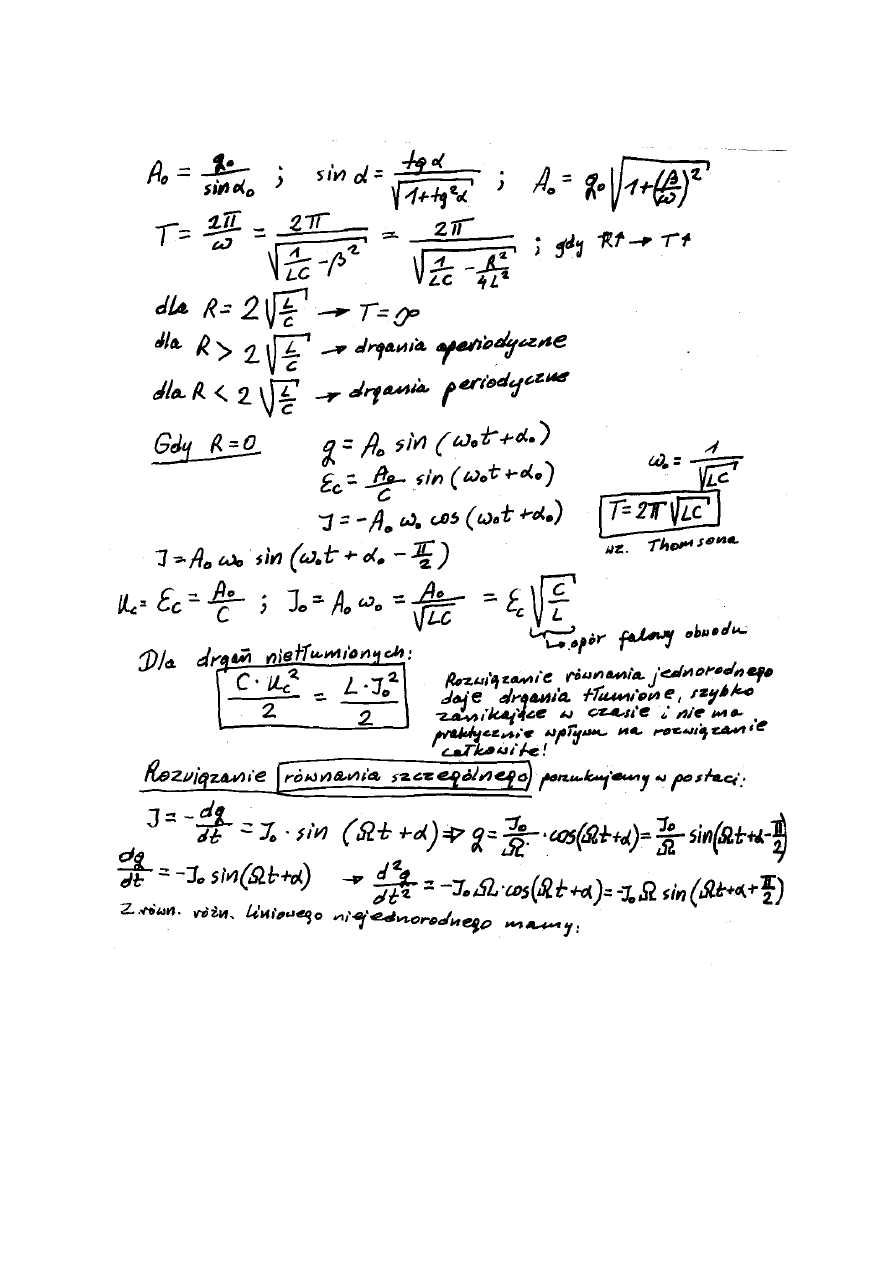 A₀ = q₀/sinα₀ ; sin α = tg α/√(1+tg²α) ; A₀ = q₀ √(1+(β/ω)²)
T = 2π/ω = 2π/√(1/LC − β²) = 2π/√(1/LC − R²/4L²) ; gdy R↑ → T↑
dla R = 2√(L/C) → T = ∞
dla R > 2√(L/C) → drgania aperiodyczne
dla R < 2√(L/C) → drgania periodyczne
Gdy R=0 q = A₀ sin (ω₀t + α₀)
ω₀ = 1/√LC
Ɛc = A₀/C sin (ω₀t + α₀)
J = −A₀ ω₀ cos (ω₀t + α₀)
T = 2π√LC
wz. Thomsona
J = A₀ ω₀ sin (ω₀t + α₀ − π/2)
Uc = Ɛc = A₀/C ; J₀ = A₀ ω₀ = A₀/√LC = Ɛc √(C/L)
→ opór falowy obwodu
Dla drgań nietłumionych:
C·Uc²/2 = L·J₀²/2
Rozwiązanie równania jednorodnego
daje drgania tłumione, szybko
zanikające w czasie i nie ma
praktycznie wpływu na rozwiązanie
całkowite!
Rozwiązanie równania szczególnego poszukujemy w postaci:
J = −dq/dt = J₀ · sin (Ωt + α) ⇒ q = J₀/Ω · cos(Ωt+α) = J₀/Ω sin(Ωt+α−π/2)
dq/dt = −J₀ sin(Ωt+α) → d²q/dt² = −J₀Ω·cos(Ωt+α) = −J₀Ω sin (Ωt+α+π/2)
Z równ. różn. liniowego niejednorodnego mamy: